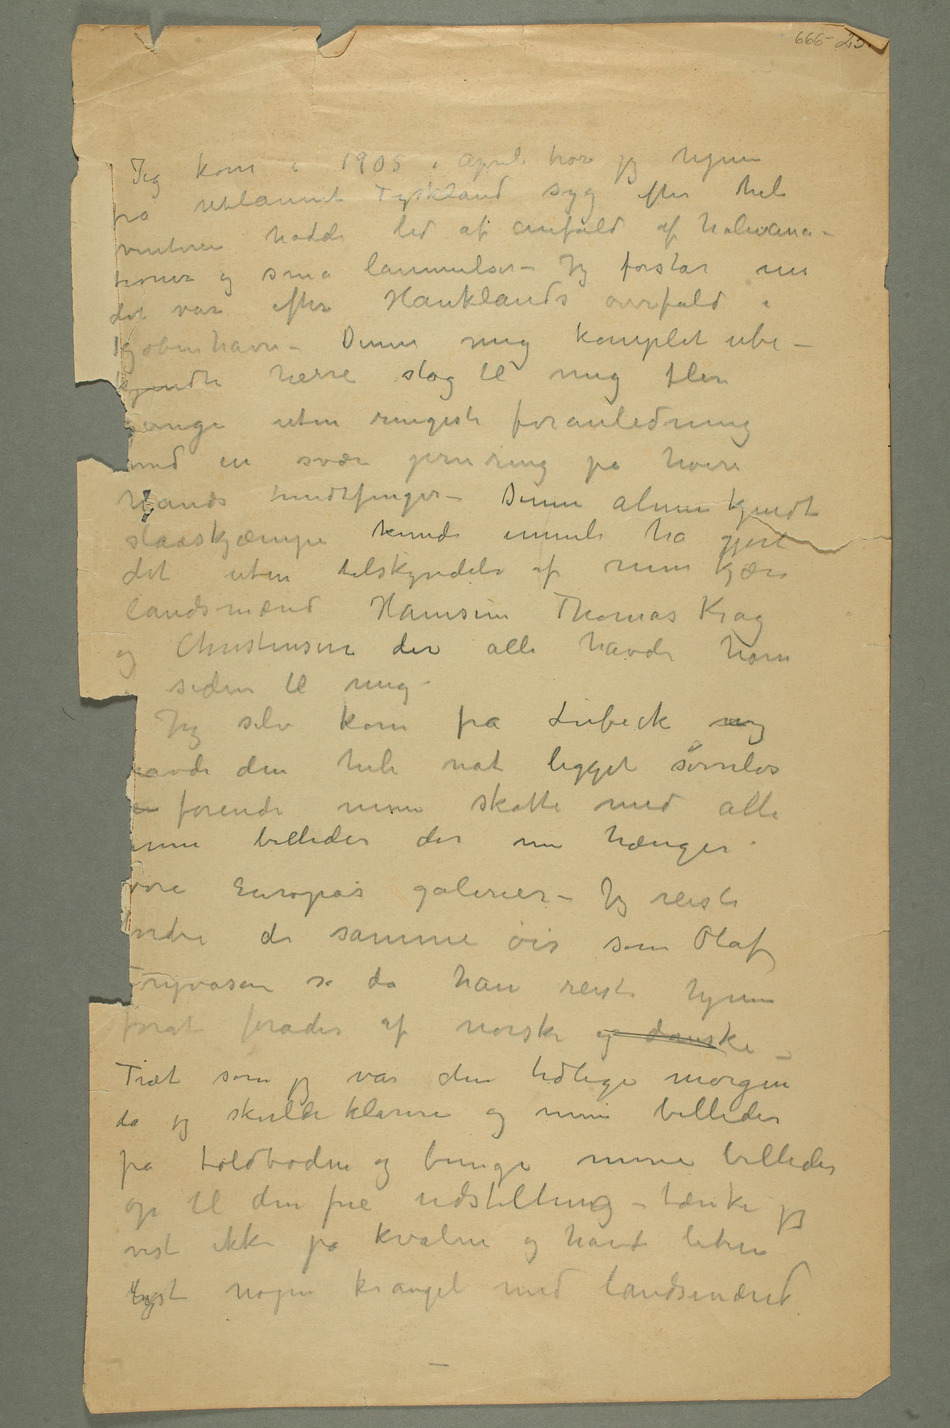 666-25.
Jeg kom i 1905 i april tror jeg hjem
fra utlannet Tyskland syg efter hele
vinteren hadde lid af anfald af halucina–
tioner og små lammelser – Jg forstår nu
det var efter Hauklands overfald i
Kjøbenhavn – Denne mig komplet ube–
kjendte herre slog til mig flere
gange uten ringeste foranledning
med en svær jernring på høire
Hånds fingér – Denne almen kjendt
slaaskjæmpe kunde umuli ha gjort
det uten tilskyndelse af mine kjære
landsmænd Hamsun Thomas Krag
og Christensen der alle havde horn
i siden til mig –
Jeg selv kom fra Lübeck
havde den hele nat ligget søvnløs
førende mine skatte med alle
mine billeder der nu hænger
Europas gallerier – Jg reiste
de samme øer som Olaf
Trygvasøn så da han reiste hjem
forat forådes af norske og danske –
Træt som jg var den tidlige morgen
da jg skulde klarere og mine billeder
på toldboden og bringe mine billeder
op til den frie udstilling – tænkte jg
vist ikke på kvalme og havde liten
lyst nogen krangel med landsmænd
–